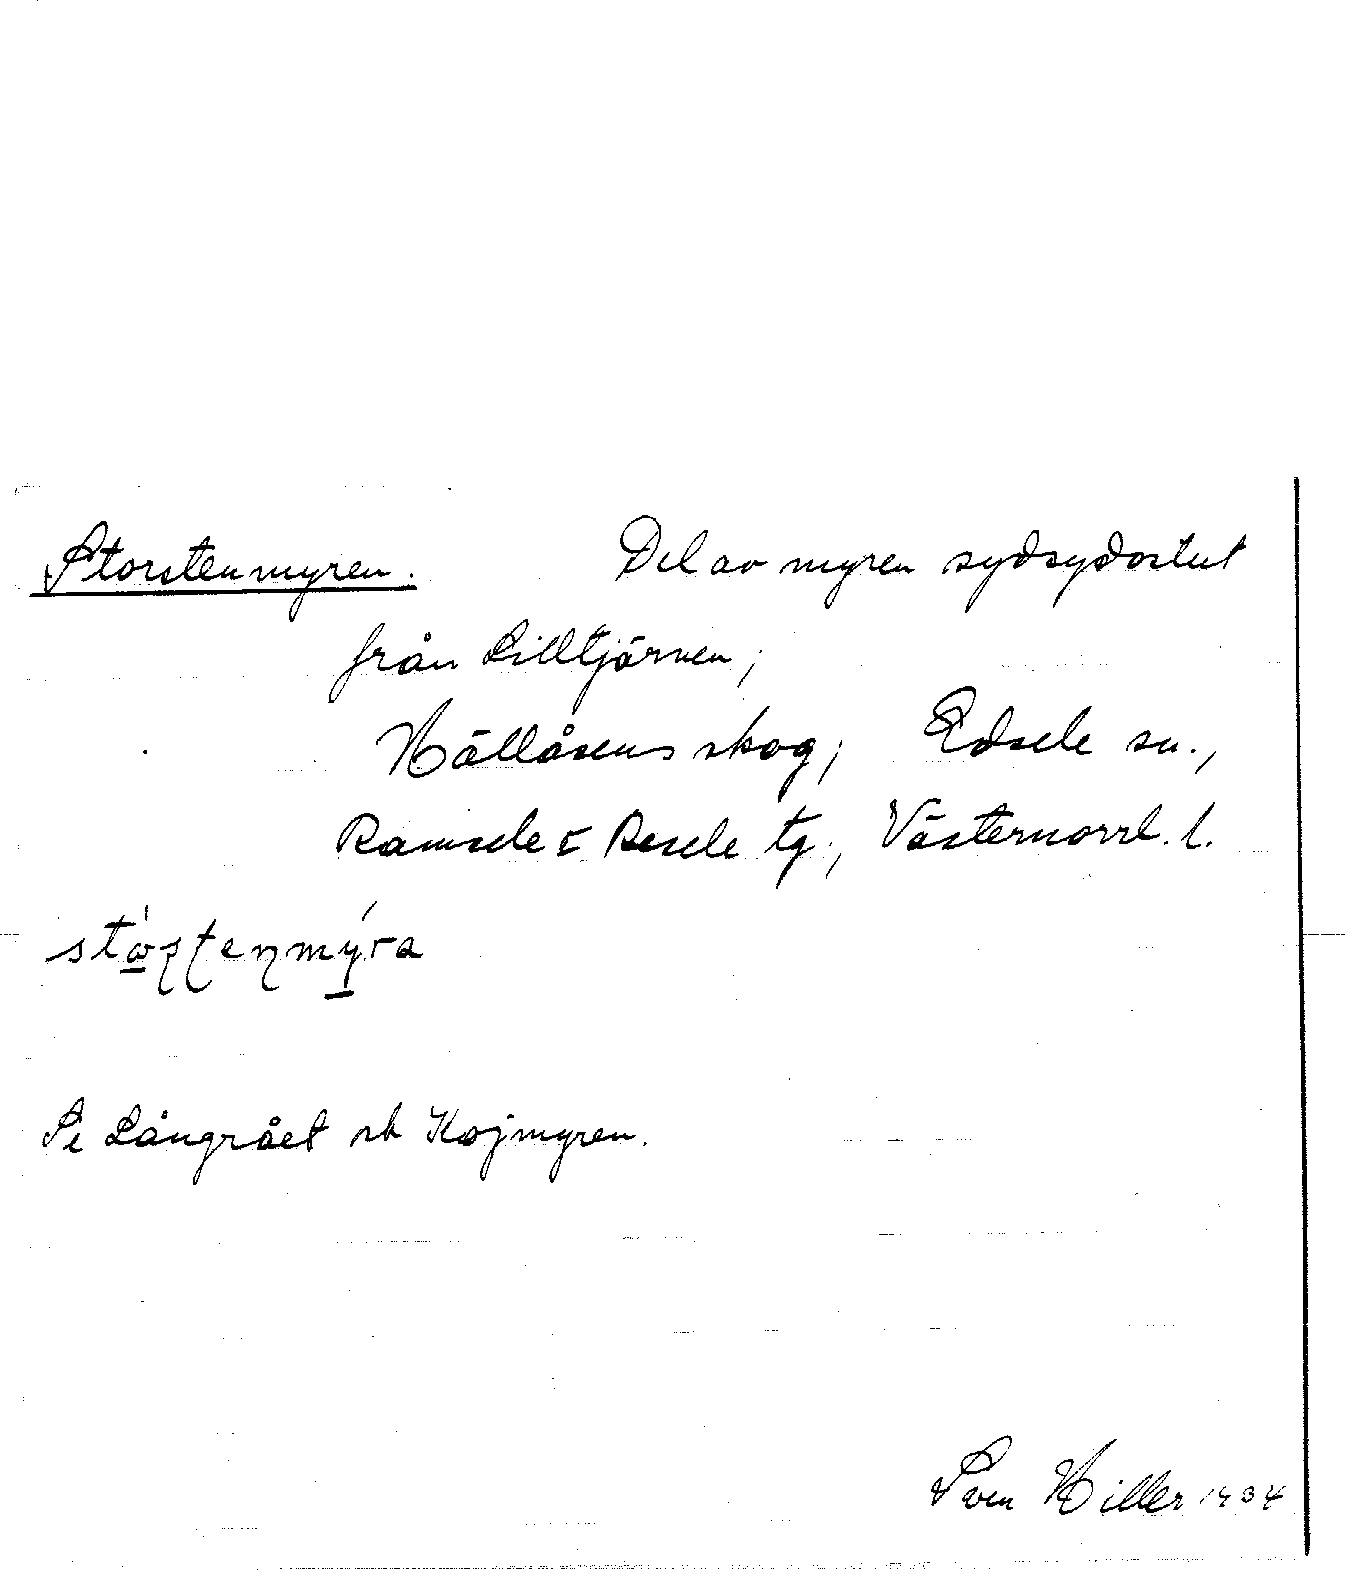 Storstenmyren. Del av myren sydsydostut
från Lilltjärnen;
Hällåsens skog; Edsele sn.,
Ramsele o Resele tg., Västernorrl. l.
Se Långrået sk Kojmyren.
Sven Hiller 1934